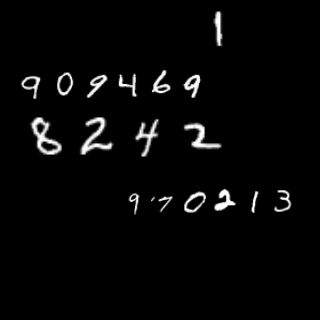 1
909469
8242
970213